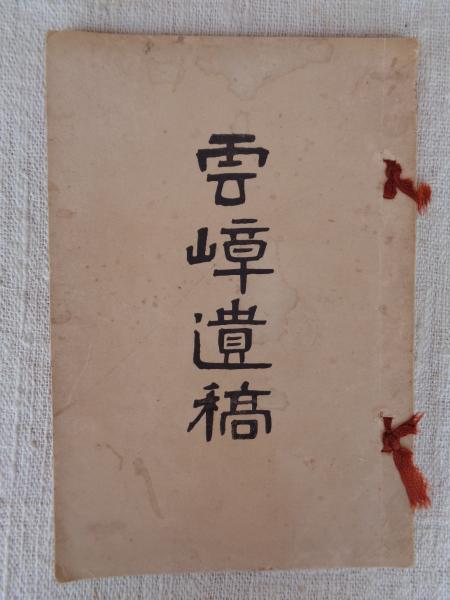 雲嶂遺稿